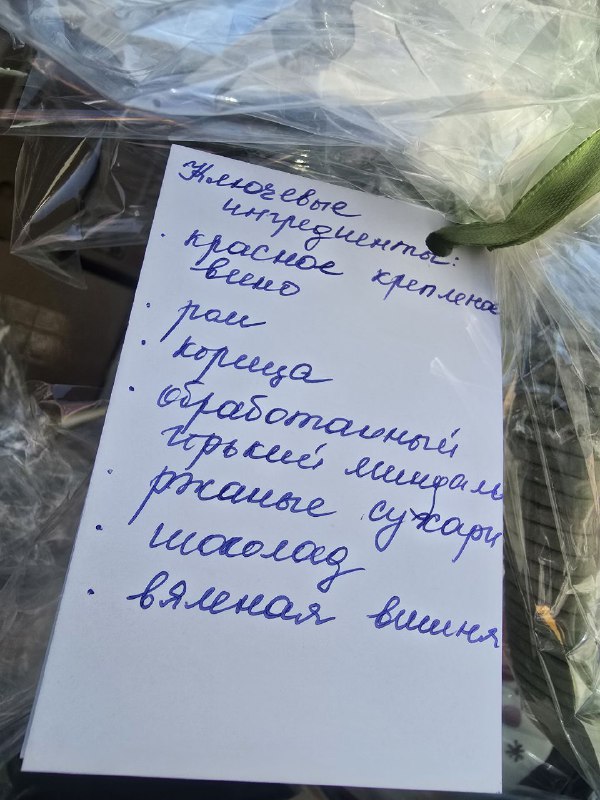 Ключевые
ингредиенты:
· красное крепленое
вино
· ром
· корица
· обработанный
горький миндаль
· ржаные сухари
· шоколад
· вяленая вишня